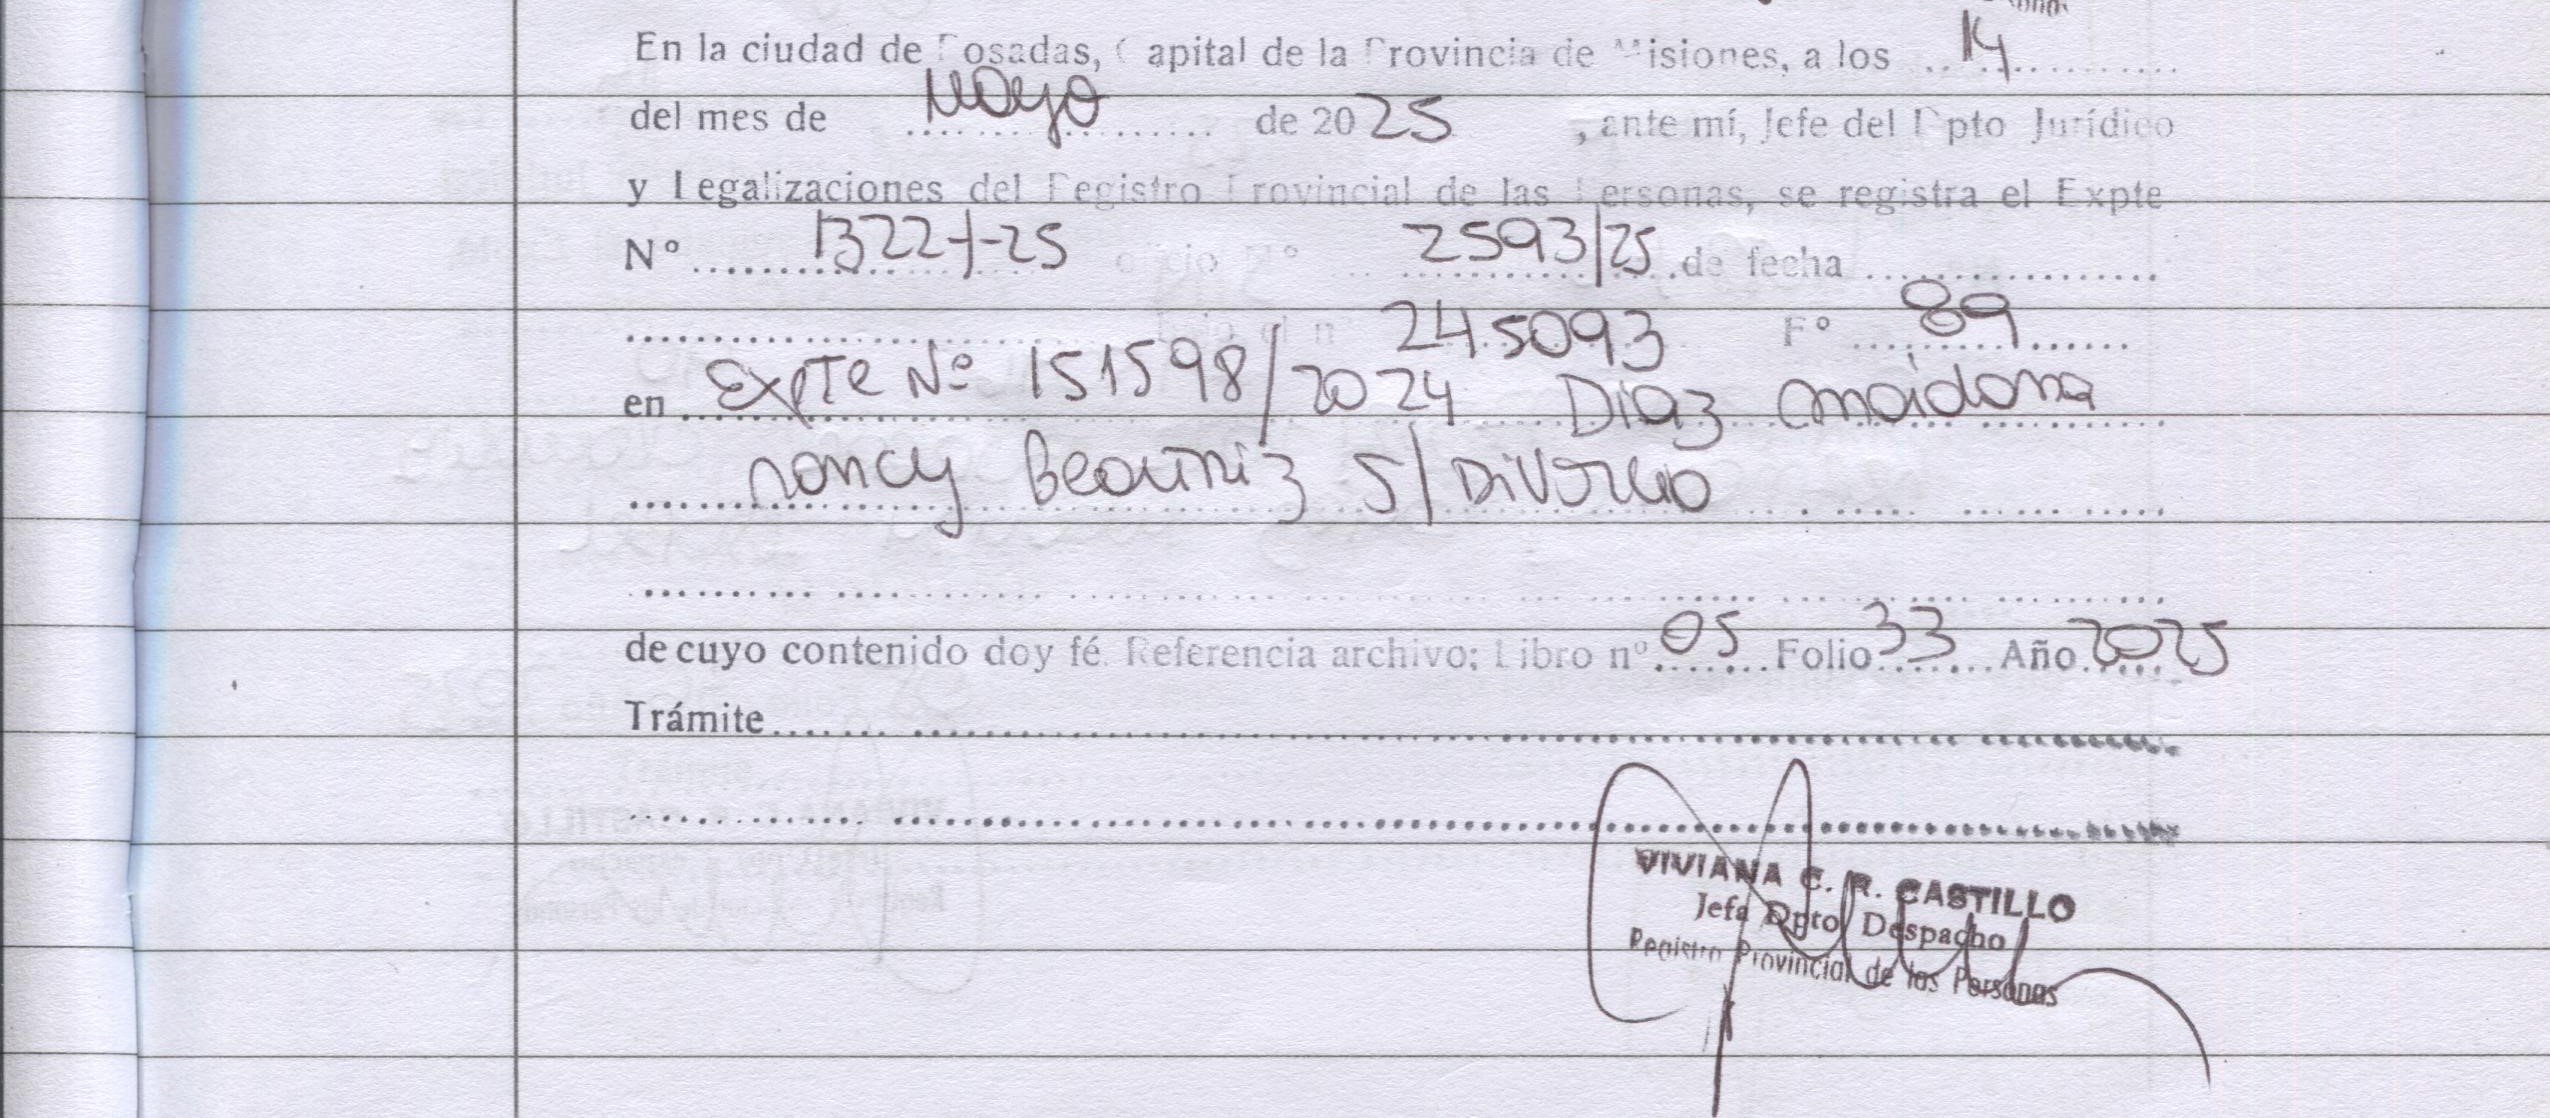 En la ciudad de Posadas, Capital de la Provincia de Misiones, a los 14
del mes de Mayo de 2025, ante mí, Jefe del Dpto Jurídico
y Legalizaciones del Registro Provincial de las Personas, se registra el Expte
Nº 1322-I-25 oficio Nº 2593/25 de fecha
bajo el nº 245093 Fº 89
en Expte Nº 151598/2024 Diaz
nancy Beatriz S/ Divorcio
de cuyo contenido doy fé. Referencia archivo: Libro nº 05 Folio 33 Año 2025
Trámite
VIVIANA C. R. CASTILLO
Jefa Dpto Despacho
Registro Provincial de las Personas